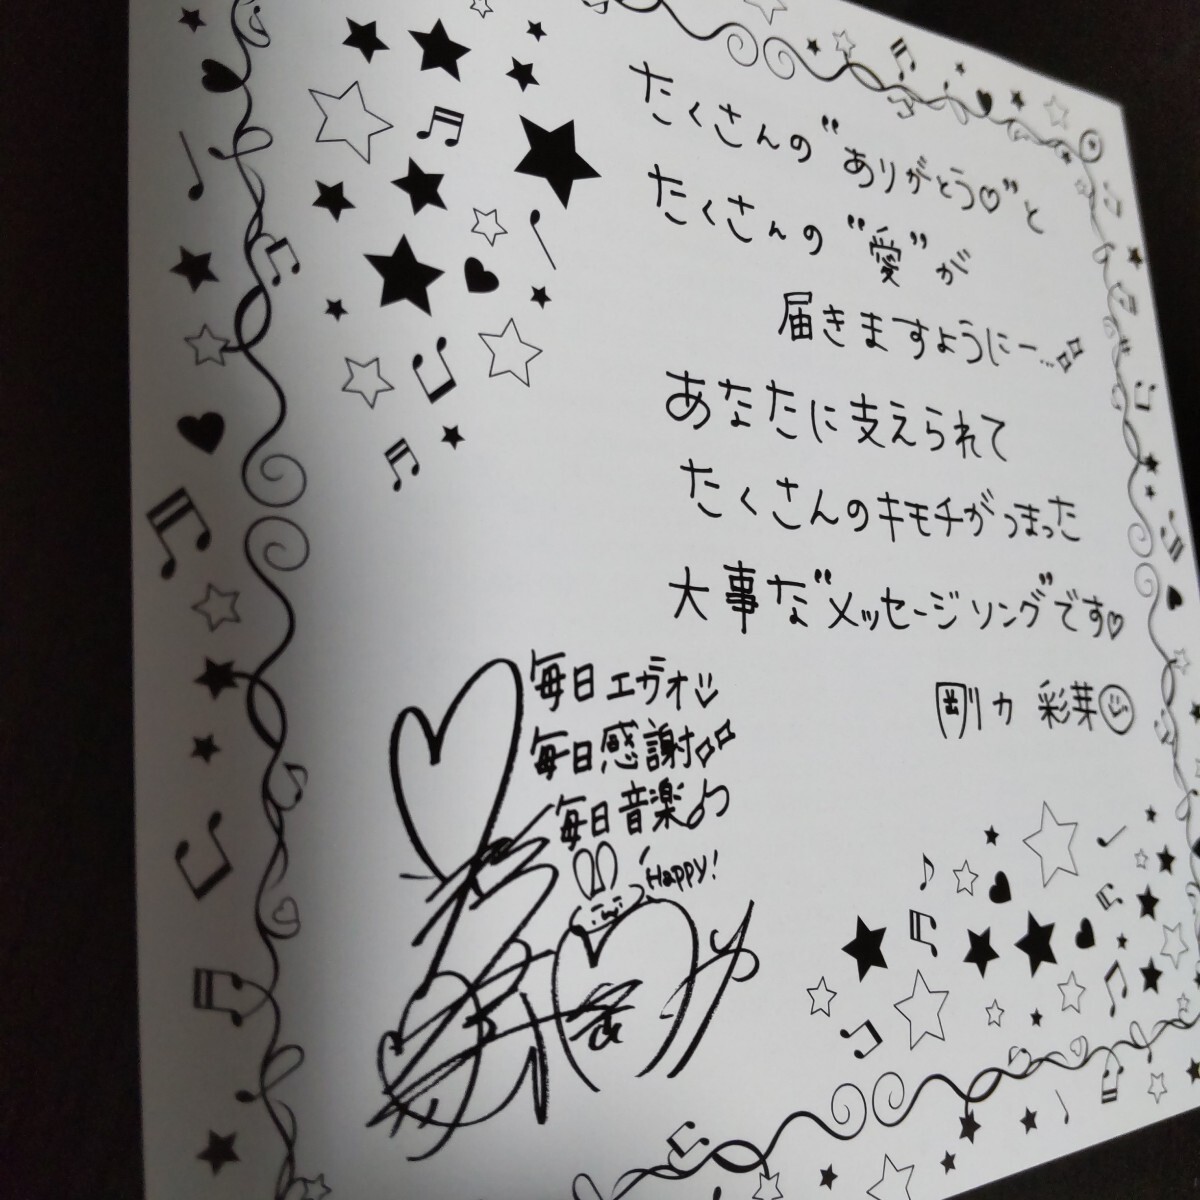 たくさんの"ありがとう♡"と
たくさんの"愛"が
届きますようにー…
あなたに支えられて
たくさんのキモチがつまった
大事な"メッセージソング"です♡
剛力 彩芽
毎日エガオ
毎日感謝
毎日音楽♫
Happy!